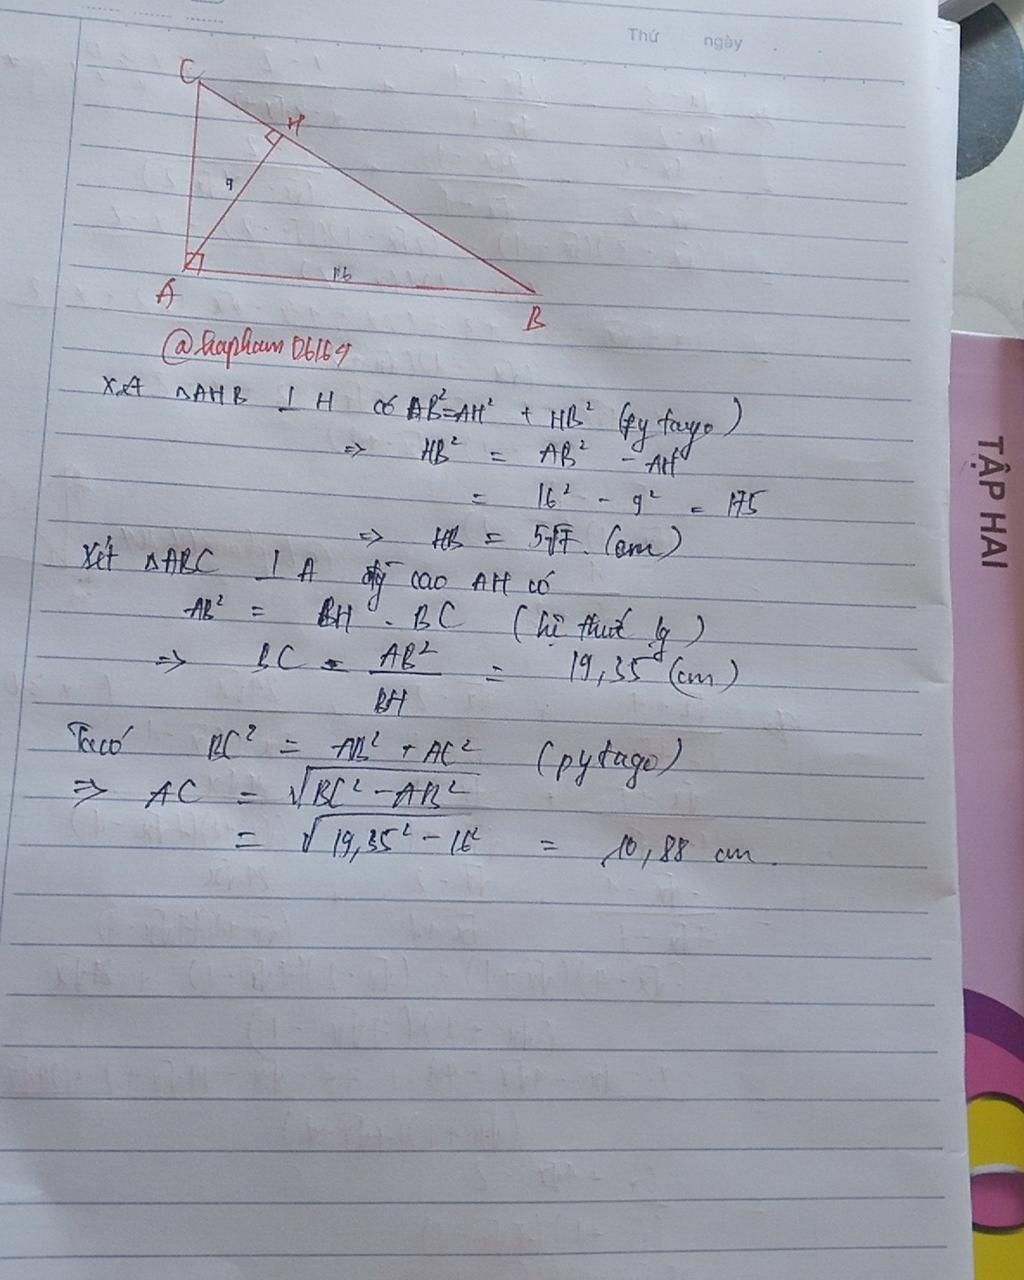 Thứ ngày
C
H
9
A
16
B
@hapham06169
Xét △AHB ⊥ H có AB² = AH² + HB² (pytago)
=> HB² = AB² - AH²
= 16² - 9² = 175
=> HB = 5√7. (cm)
Xét △ABC ⊥ A đg cao AH có
AB² = BH . BC (hệ thức lg)
=> BC = AB²/BH = 19,35 (cm)
Ta có BC² = AB² + AC² (pytago)
=> AC = √BC² - AB²
= √19,35² - 16² = 10,88 cm.
TẬP HAI